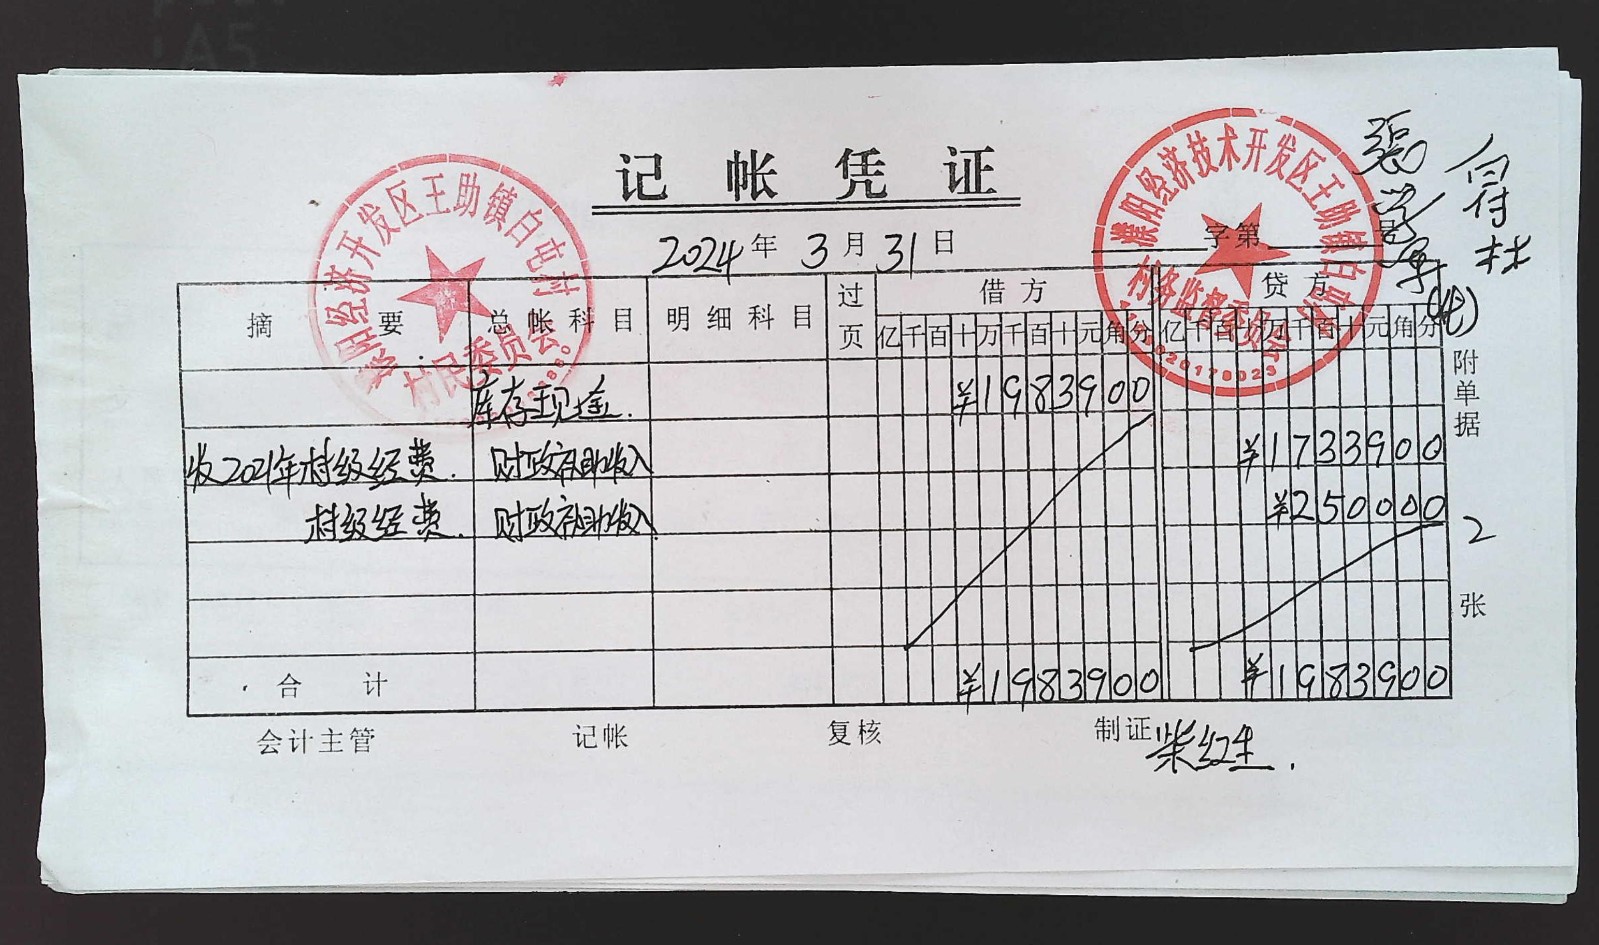 A5
记帐凭证
2024年3月31日
字第 号
濮阳经济开发区王助镇白屯村
村民委员会
濮阳经济技术开发区王助镇白屯村
村务监督委员会
白付林
摘要 总帐科目 明细科目 过页 借方 贷方
亿千百十万千百十元角分 亿千百十万千百十元角分
库存现金. ¥1983900
收2021年村级经费. 财政补助收入 ¥1733900
村级经费. 财政补助收入 ¥250000
合计 ¥1983900 ¥1983900
附单据 2 张
会计主管 记帐 复核 制证 柴红生.